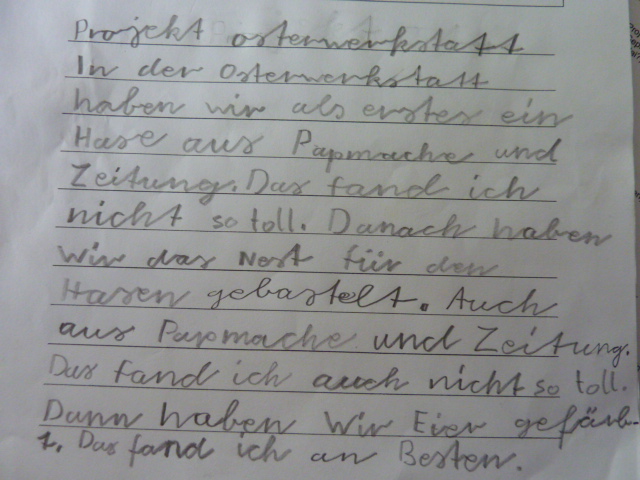 Projekt osterwerkstatt
In der Osterwerkstatt
haben wir als erstes ein
Hase aus Papmache und
Zeitung. Das fand ich
nicht so toll. Danach haben
wir das Nest für den
Hasen gebastelt. Auch
aus Papmache und Zeitung.
Das fand ich auch nicht so toll.
Dann haben wir Eier gefärb-
t. Das fand ich an Besten.